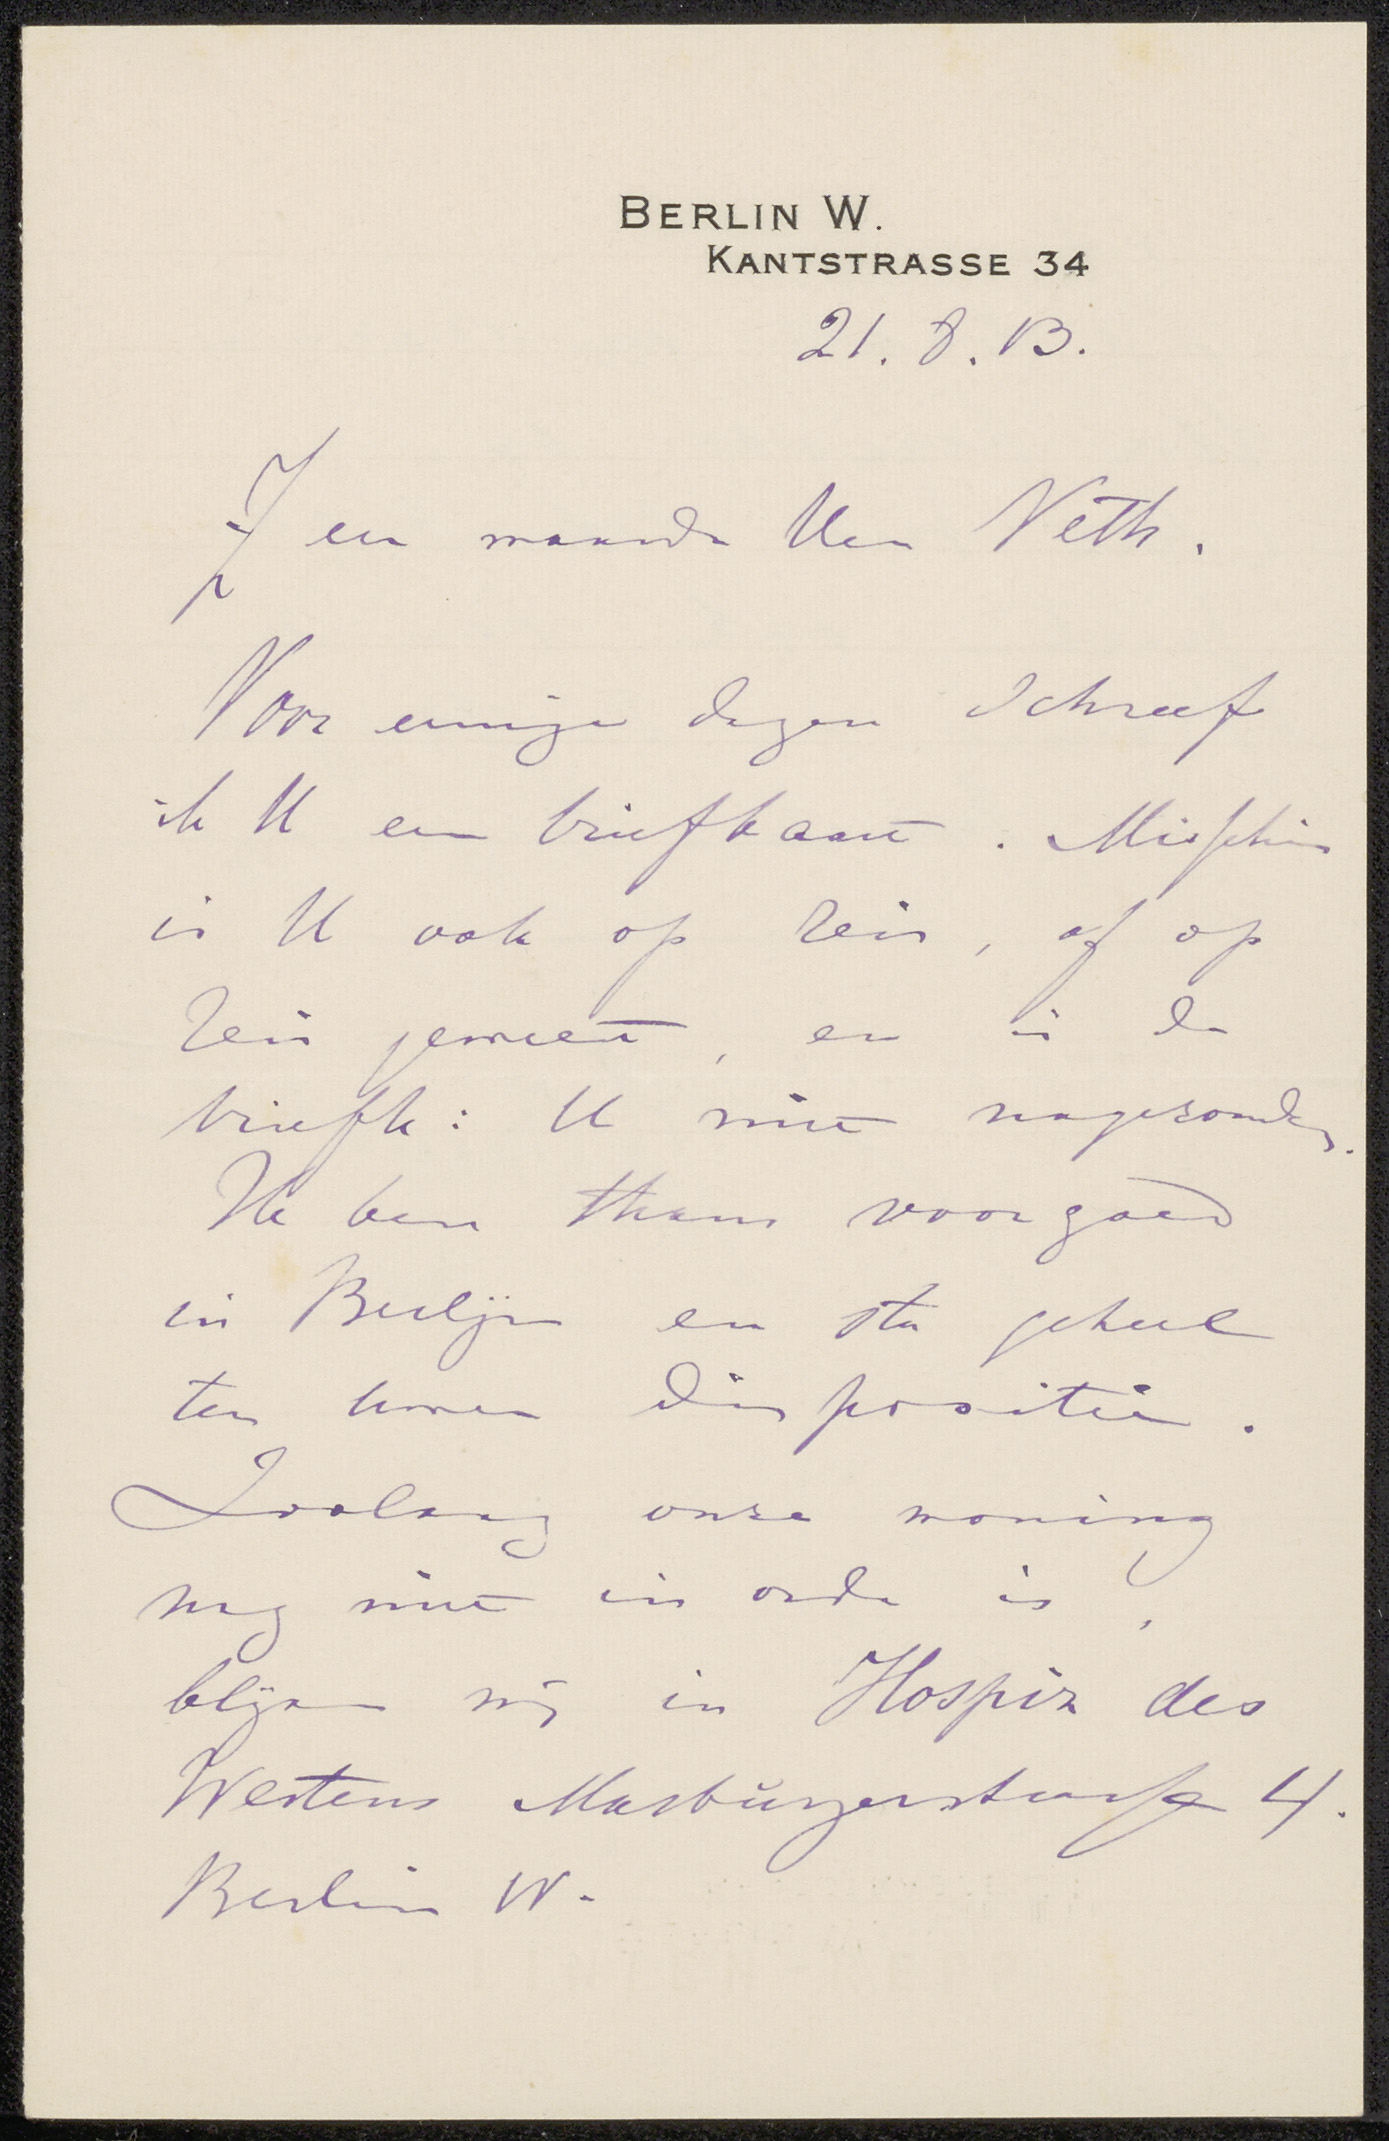 BERLIN W.
KANTSTRASSE 34
21. 8. 13.
Zeer waarde Heer Veth.
Voor eenige dagen schreef
ik U een briefkaart. Misschien
is U ook op reis, of op
reis geweest, en is de
briefk: U niet nagezonden.
Ik ben thans voorgoed
in Berlijn en sta geheel
ter Uwer dispositie.
Zoolang onze woning
nog niet in orde is,
blijven wij in Hospiz des
Westens Marburgerstrasse 4.
Berlin W.